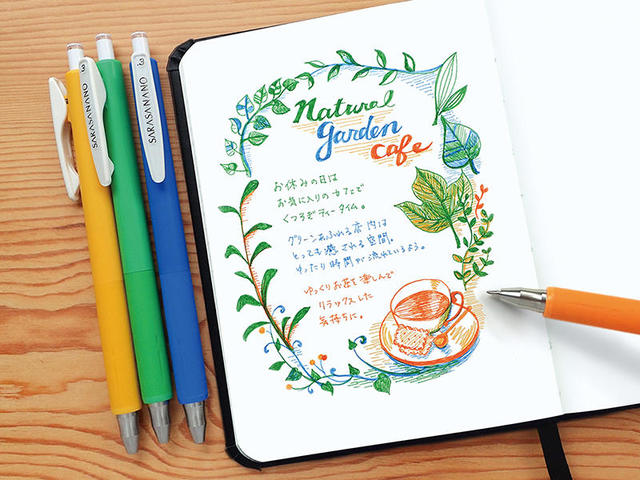 .3
SARASA NANO
.3
SARASA NANO
Natural
garden
cafe
お休みの日は
お気に入りのカフェで
くつろぎティータイム。
グリーンあふれる店内は
とっても癒される空間。
ゆったり時間が流れているよう。
ゆっくりお茶を楽しんで
リラックスした
気持ちに。